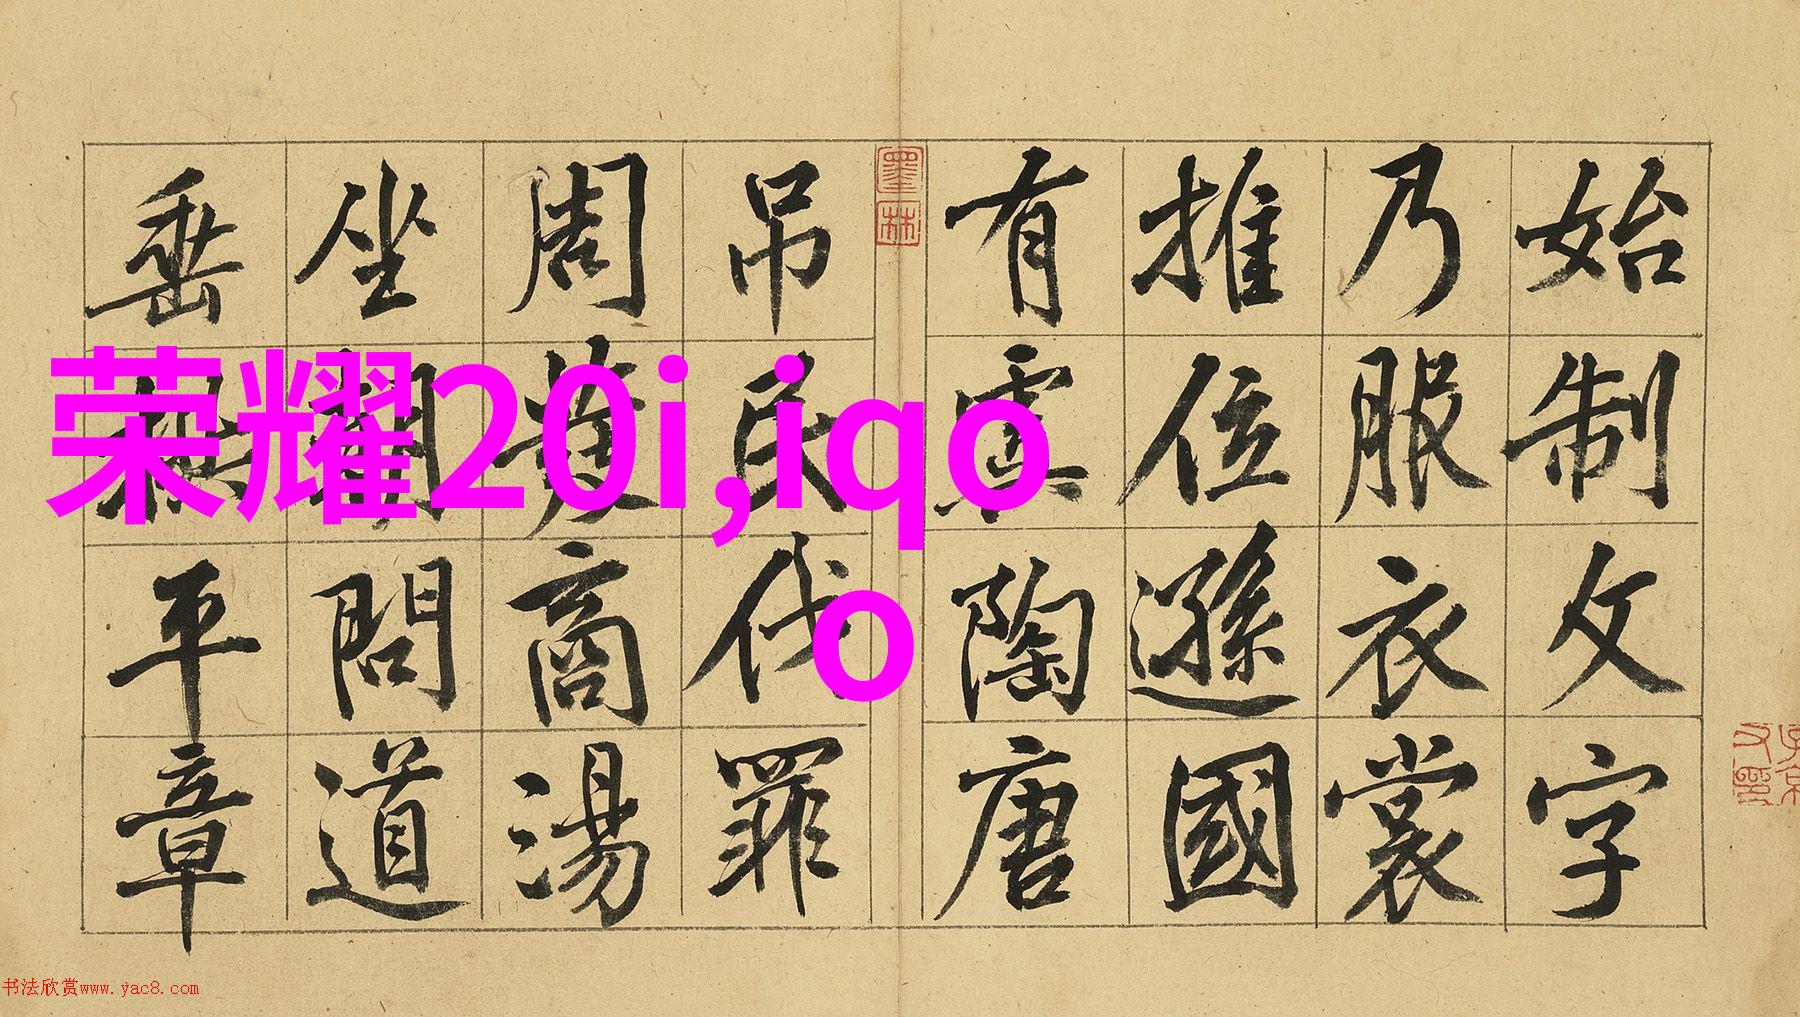 荣耀20i,iqo
o
始制文字
乃服衣裳
推位遜國
有虞陶唐
墨林
吊民伐罪
周發商湯
坐朝問道
垂拱平章
书法欣赏www.yac8.com